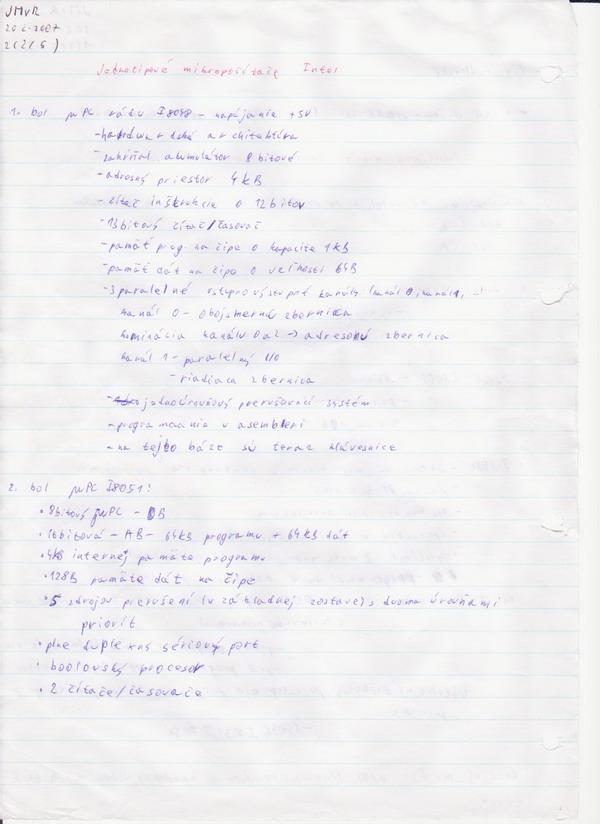 JMVR
20.2.2007
2(2/5)
Jednočipové mikropočítače Intel
1. bol μPC rádu I8048 - napájanie +5V
- hardvardská architektúra
- zahŕňal akumulátor 8 bitové
- adresný priestor 4kB
- čítač inštrukcie o 12bitov
- 13bitový čítač/časovač
- pamäť prog. na čipe o kapacite 1kB
- pamäť dát na čipe o veľkosti 64B
- 3 paralelné vstupno výstupné kanály (kanál 0, kanál 1, 2)
kanál 0 - obojsmerná zbernica
kominácia kanálu 0 a 2 -> adresná zbernica
kanál 1 - paralelný I/O
- riadiaca zbernica
- jednoúrovňový prerušovací systém
- programovanie v asembleri
- na tejto báze sú teraz klávesnice
2. bol μPC I8051:
• 8bitový μPC - DB
• 16bitová - AB - 64kB programu + 64kB dát
• 4kB internej pamäte programu
• 128B pamäte dát na čipe
• 5 zdrojov prerušení (v základnej zostave) s dvoma úrovňami
priorít
• plne duplexný sériový port
• boolovský procesor
• 2 čítače/časovače